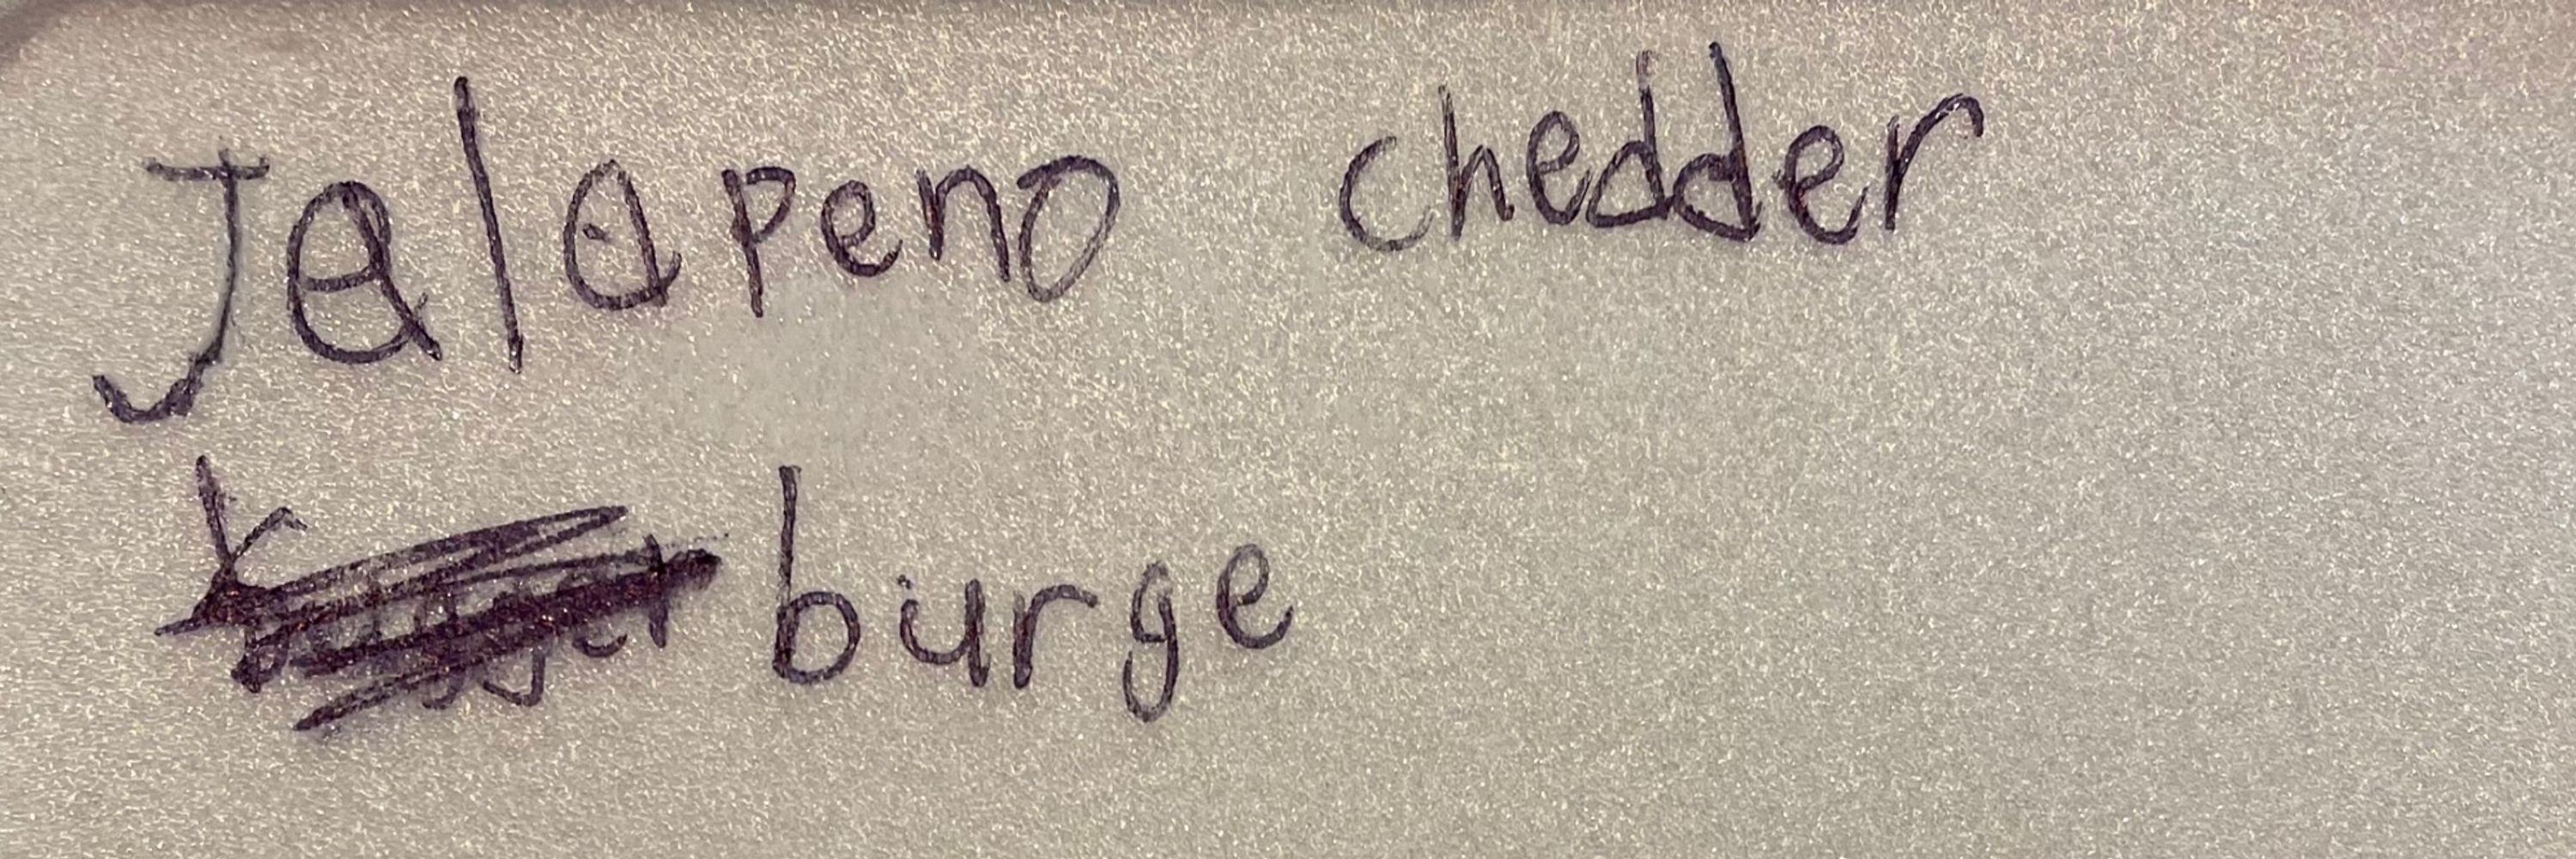 Jalapeno chedder
burge